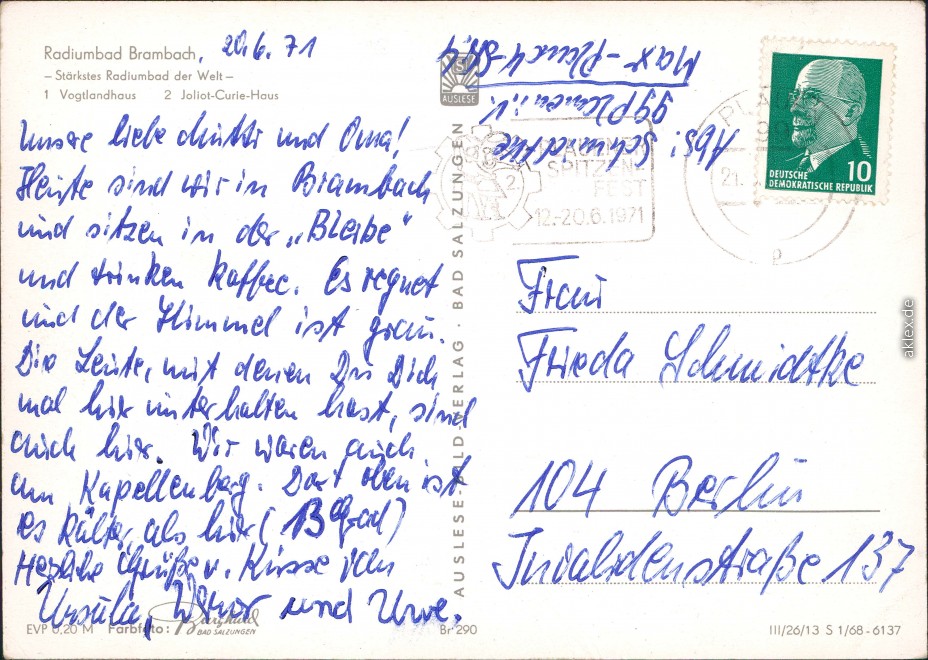 Radiumbad Brambach, 20.6.71
– Stärkstes Radiumbad der Welt –
1 Vogtlandhaus 2 Joliot-Curie-Haus
Unsere liebe Mutti und Oma!
Heute sind wir in Brambach
und sitzen in der „Bleibe"
und trinken Kaffee. Es regnet
und der Himmel ist grau.
Die Leute, mit denen Du Dich
mal hier unterhalten hast, sind
auch hier. Wir waren auch
am Kapellenberg. Dort oben ist
es kälter, als hier (13 Grad)
Herzliche Grüße u. Küsse von
Ursula, und Uwe.
EVP 0,20 M Farbfoto:
BAD SALZUNGEN
Br 290
AUSLESE-BILD-VERLAG · BAD SALZUNGEN
AUSLESE
Abs: Schmidtke
99 Plauen i. V.
Max-Planck-Str. 4
PLAUEN
21.
p
SPITZEN-
FEST
12.-20.6.1971
10
DEUTSCHE
DEMOKRATISCHE REPUBLIK
Frau
Frieda Schmidtke
104 Berlin
Invalidenstraße 137
III/26/13 S 1/68 - 6137
aklex.de